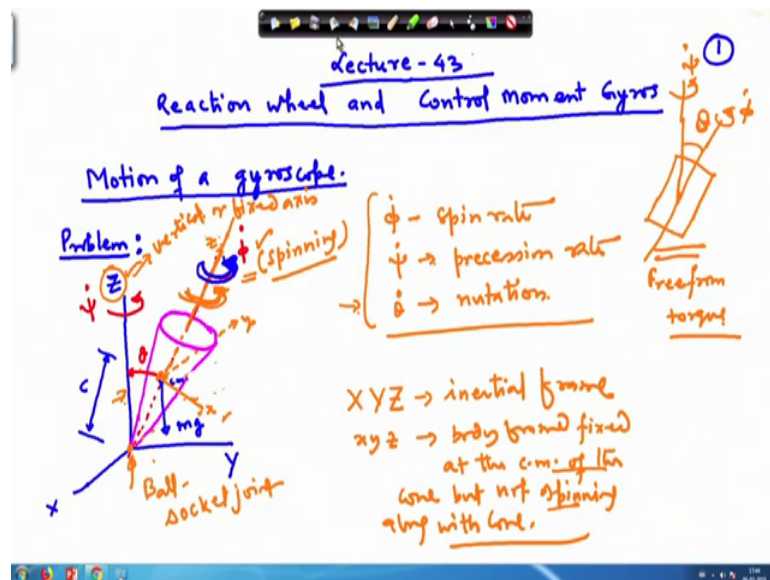 Lecture-43
Reaction wheel and Control Moment Gyros
①
ψ̇
θ
φ̇
Free from
torque
Motion of a gyroscope.
Problem:
vertical or fixed axis
Z
ψ̇
z
φ̇
(spinning)
θ
y
c
cm
x
mg
X
Y
Ball-
socket joint
φ̇ - spin rate
ψ̇ → precession rate
θ̇ → nutation.
XYZ → inertial frame
xyz → body frame fixed
at the c.m. of the
cone but not spinning
along with cone.
17:46